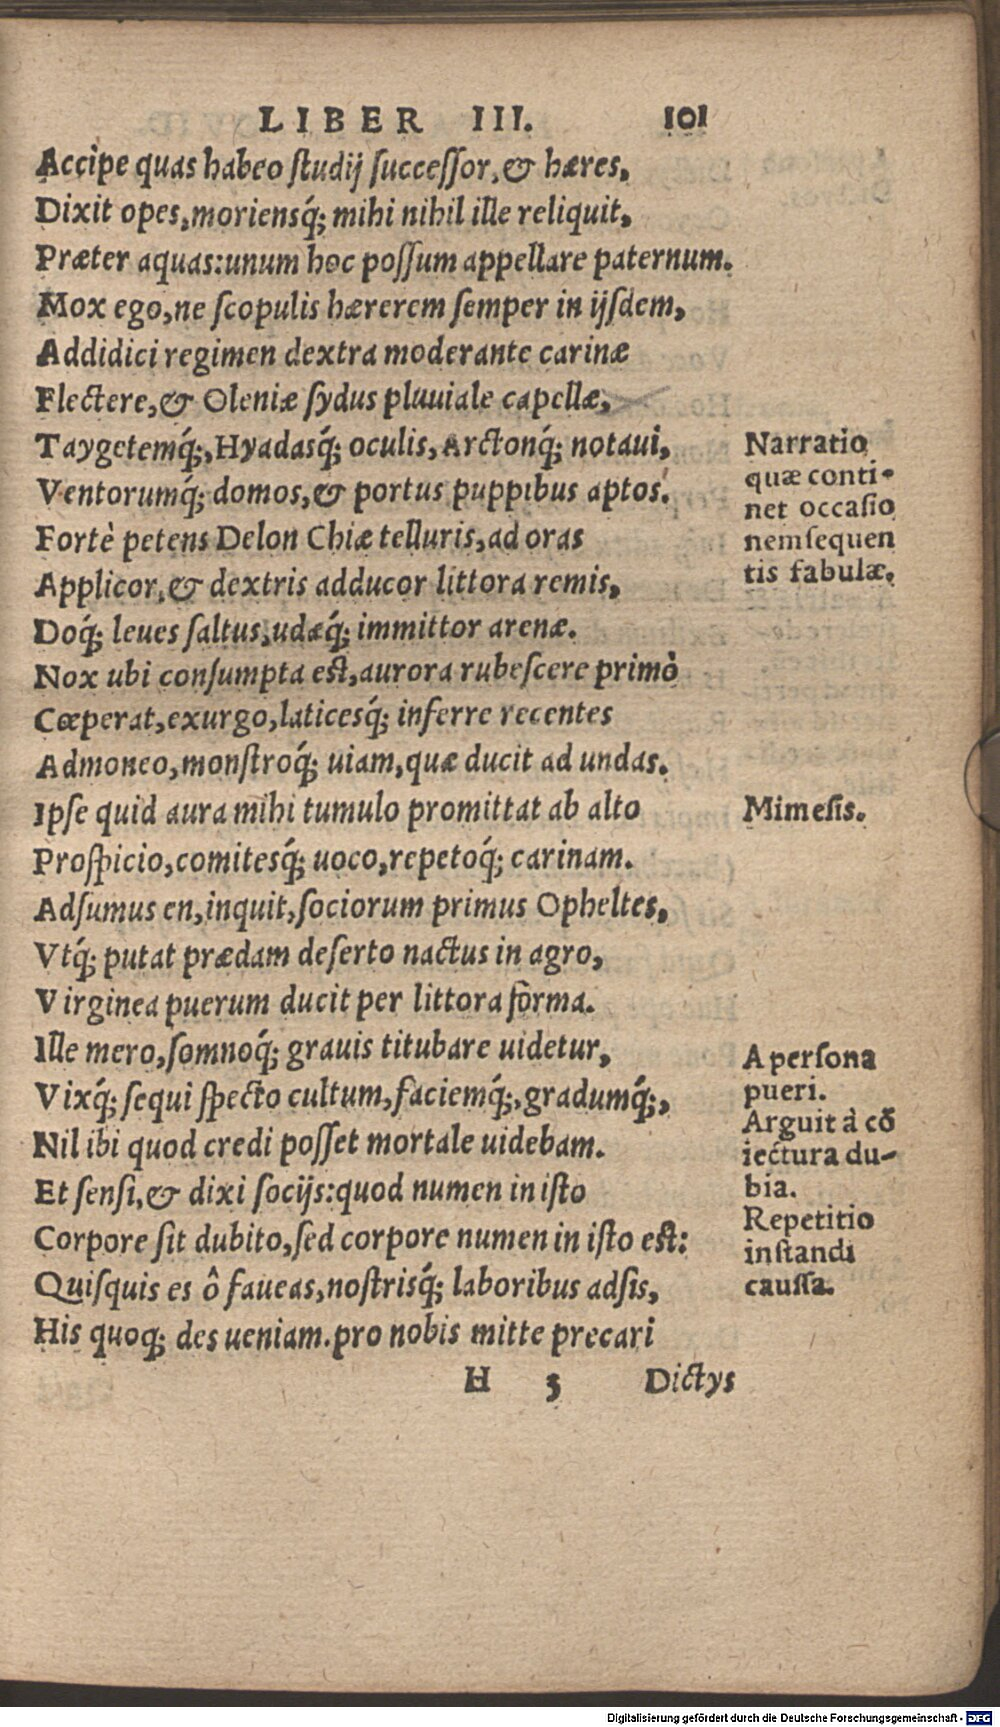 LIBER III. 101
Accipe quas habeo ſtudij ſucceſſor, & hæres,
Dixit opes, moriensq́; mihi nihil ille reliquit,
Præter aquas: unum hoc poſſum appellare paternum.
Mox ego, ne ſcopulis hærerem ſemper in ijſdem,
Addidici regimen dextra moderante carinæ
Flectere, & Oleniæ ſydus pluuiale capellæ,
Taygetemq́;, Hyadasq́; oculis, Arctonq́; notaui,
Ventorumq́; domos, & portus puppibus aptos.
Fortè petens Delon Chiæ telluris, ad oras
Applicor, & dextris adducor littora remis,
Doq́; leues ſaltus, udæq́; immittor arenæ.
Nox ubi conſumpta eſt, aurora rubeſcere primò
Cœperat, exurgo, laticesq́; inferre recentes
Admoneo, monſtroq́; uiam, quæ ducit ad undas.
Ipſe quid aura mihi tumulo promittat ab alto
Proſpicio, comitesq́; uoco, repetoq́; carinam.
Adſumus en, inquit, ſociorum primus Opheltes,
Vtq́; putat prædam deſerto nactus in agro,
Virginea puerum ducit per littora forma.
Ille mero, ſomnoq́; grauis titubare uidetur,
Vixq́; ſequi ſpecto cultum, faciemq́;, gradumq́;,
Nil ibi quod credi poſſet mortale uidebam.
Et ſenſi, & dixi ſocijs: quod numen in iſto
Corpore ſit dubito, ſed corpore numen in iſto eſt:
Quiſquis es ô faueas, noſtrisq́; laboribus adſis,
His quoq; des ueniam. pro nobis mitte precari
H 3 Dictys
Narratio
quæ conti-
net occaſio
nem ſequen
tis fabulæ.
Mimeſis.
A perſona
pueri.
Arguit à cõ
iectura du-
bia.
Repetitio
inſtandi
cauſſa.
Digitalisierung gefördert durch die Deutsche Forschungsgemeinschaft - DFG